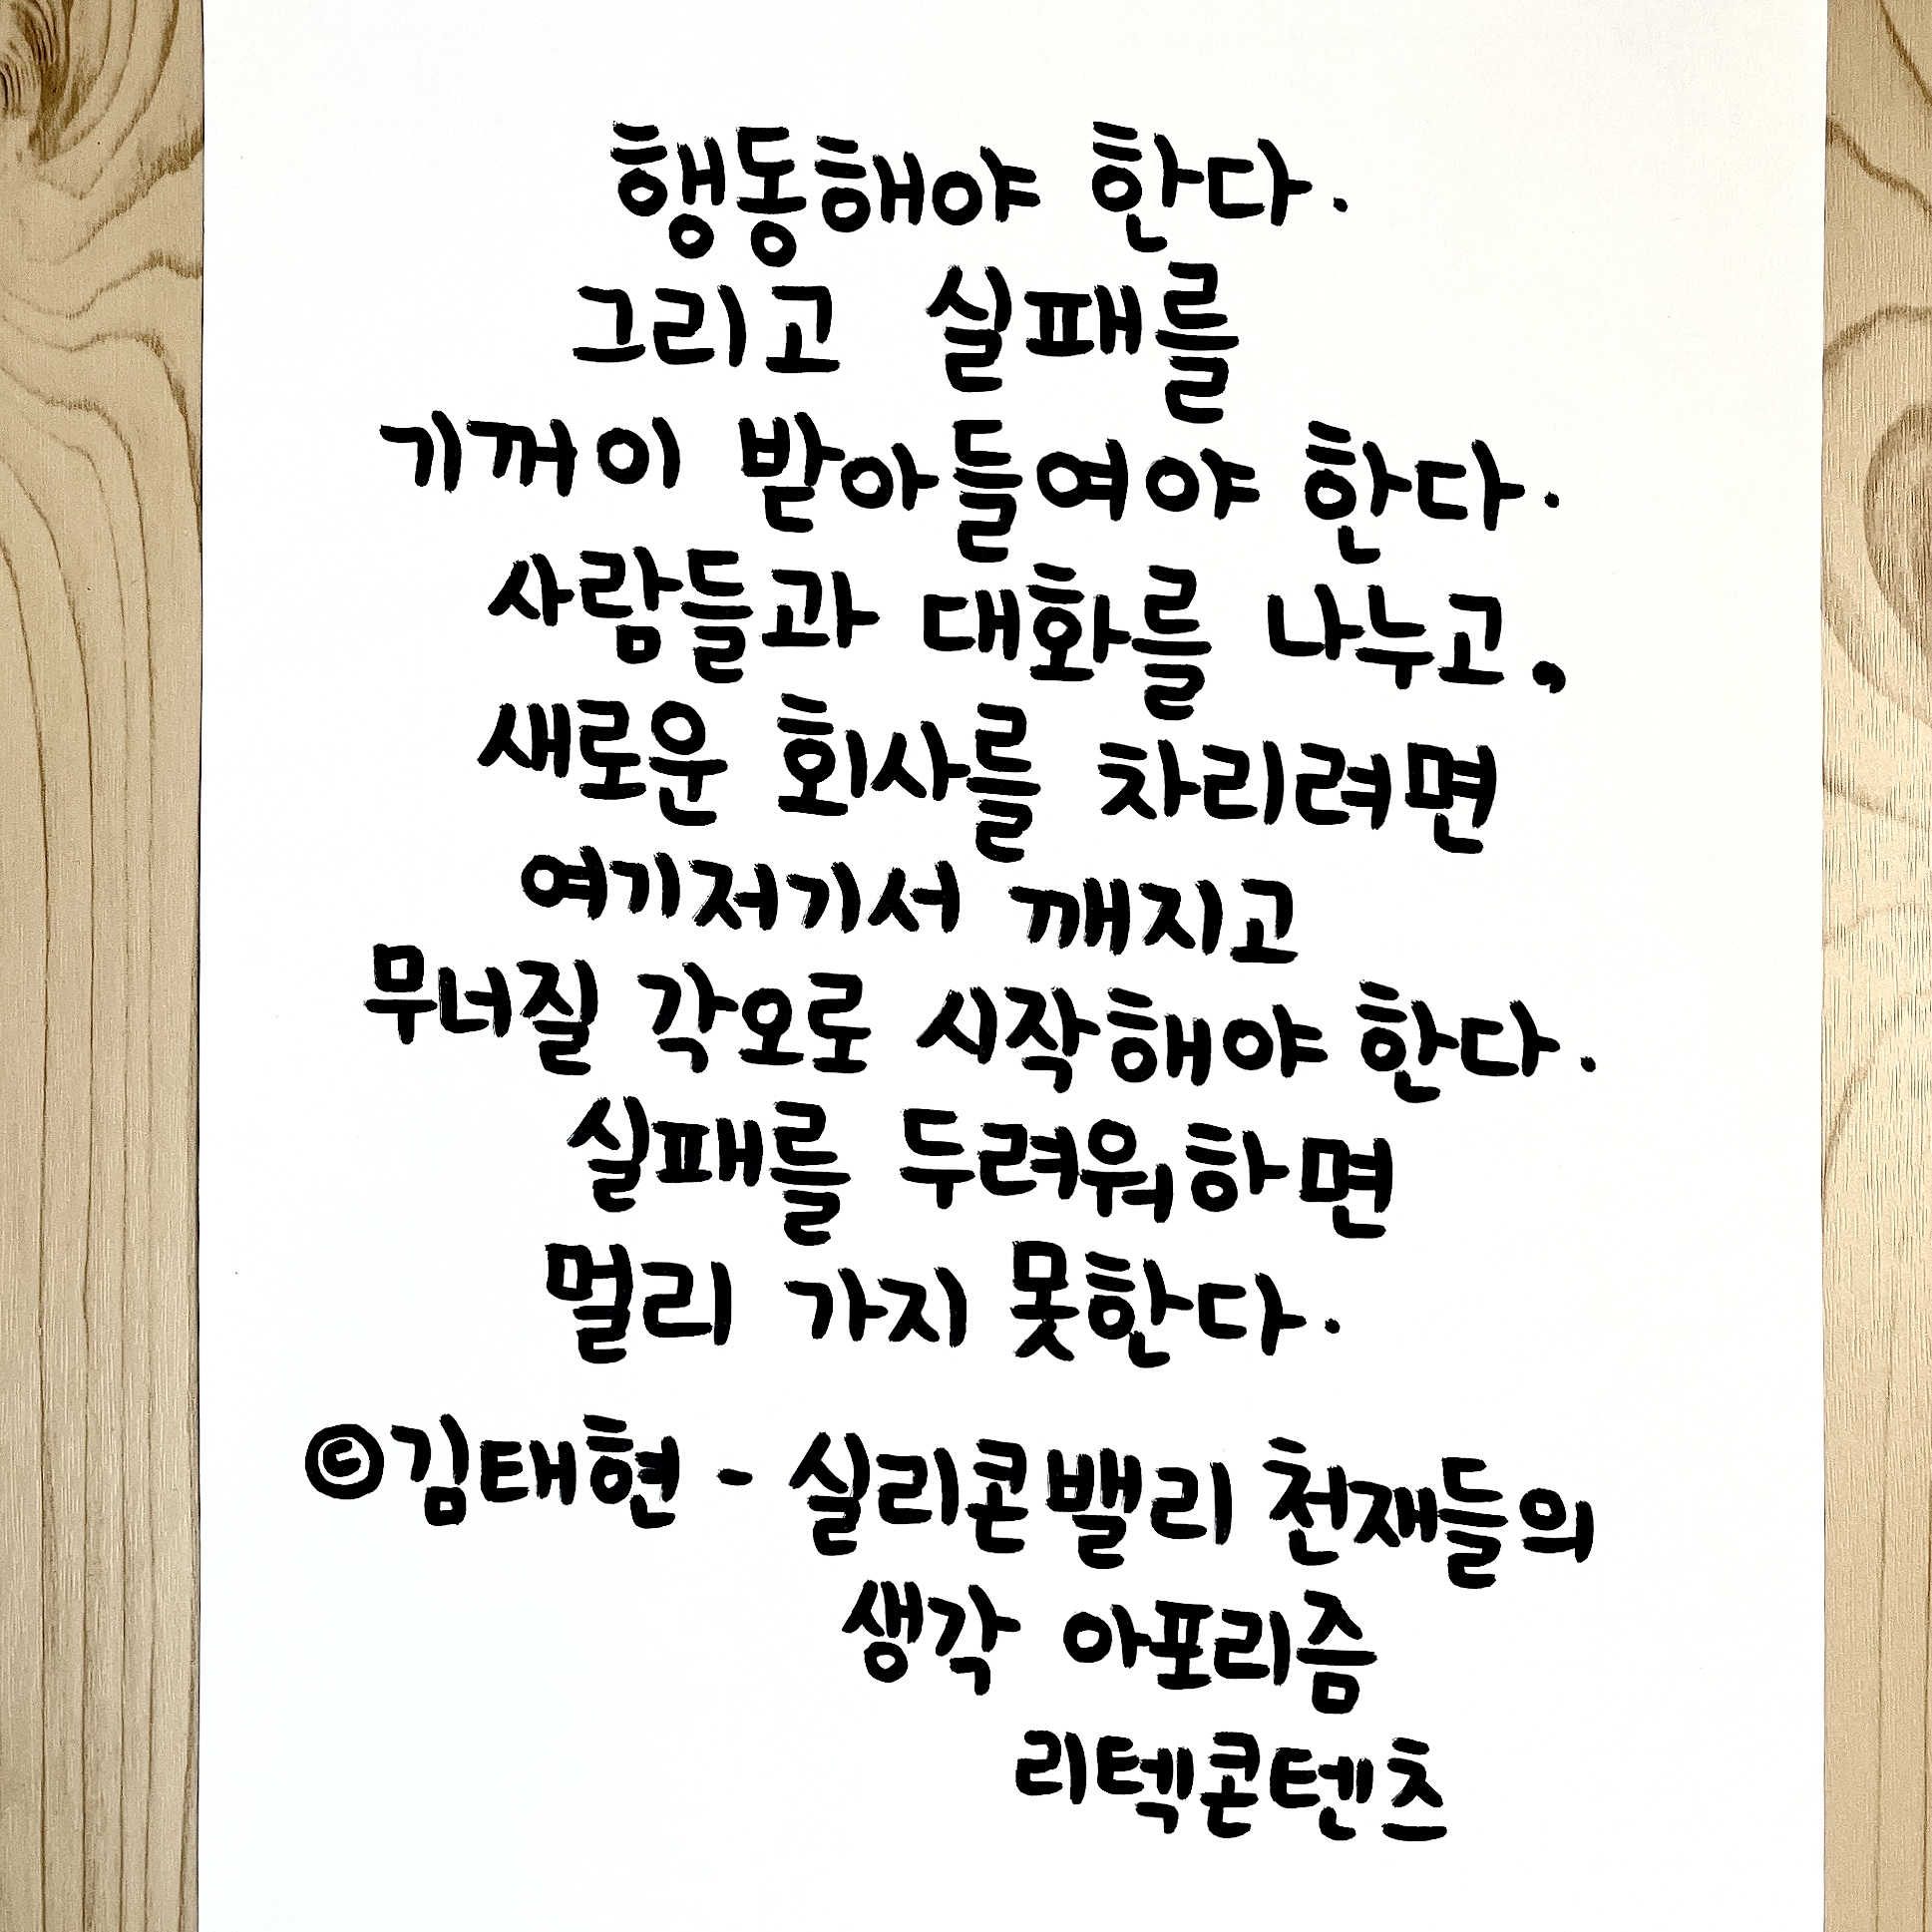 행동해야 한다.
그리고 실패를
기꺼이 받아들여야 한다.
사람들과 대화를 나누고,
새로운 회사를 차리려면
여기저기서 깨지고
무너질 각오로 시작해야 한다.
실패를 두려워하면
멀리 가지 못한다.
©김태현 - 실리콘밸리 천재들의
생각 아포리즘
리텍콘텐츠